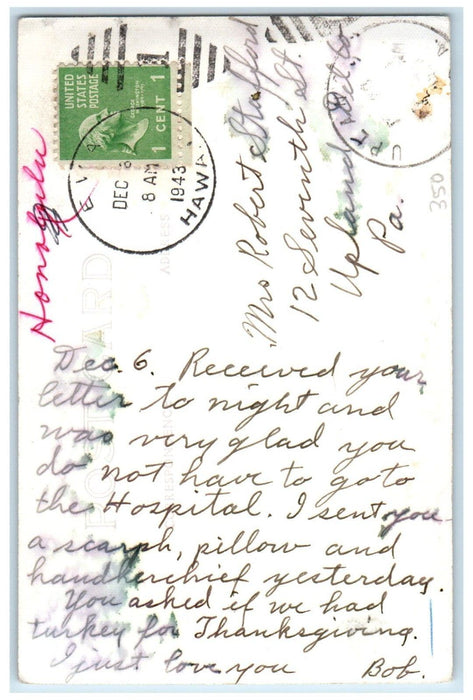 UNITED
STATES
POSTAGE
1 CENT 1
DEC
8 AM
1943
HAWA
Honolulu
POST CARD
ADDRESS
Mrs Robert Stafford
12 Seventh St.
Upland Del. Co
Pa.
350
Dec. 6. Received your
letter to night and
was very glad you
do not have to goto
the Hospital. I sent you
a scarph, pillow and
handkerchief yesterday.
You asked if we had
turkey for Thanksgiving.
I just love you Bob.